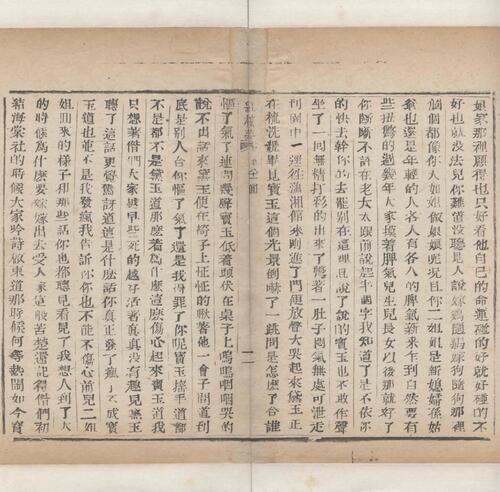 娘家那裡顧得也只好看他自己的命運碰的好就好碰的不
好也就沒法兒你難道沒聽見人說嫁雞隨雞嫁狗隨狗那裡
個個都像你大姐姐做娘娘呢況且你二姐姐是新媳婦孫姑
爺也還是年輕的人各人有各人的脾氣新來乍到自然要有
些扭彆的過幾年大家摸着脾氣兒生兒長女以後那就好了
你斷斷不許在老太太跟前說起半個字我知道了是不依你
的快去幹你的去罷別在這裡混說了說的寶玉也不敢作聲
坐了一回無精打彩的出來了憋着一肚子悶氣無處可泄走
到園中一逕往瀟湘館來剛進了門便放聲大哭起來黛玉正
在梳洗纔畢見寶玉這個光景倒嚇了一跳問是怎麼了合誰
慪了氣了連問幾聲寶玉低着頭伏在桌子上嗚嗚咽咽哭的
說不出話來黛玉便在椅子上怔怔的瞅着他一會子問道到
底是別人合你慪了氣了還是我得罪了你呢寶玉搖手道都
不是都不是黛玉道那麼着為什麼這麼傷心起來寶玉道我
只想着偺們大家越早些死的越好活着真真沒有趣兒黛玉
聽了這話更覺驚訝道這是什麼話你真正發了瘋了不成寶
玉道也並不是我發瘋我告訴你你也不能不傷心前兒二姐
姐回來的樣子和那些話你也都聽見看見了我想人到了大
的時候為什麼要嫁嫁出去受人家這般苦楚還記得偺們初
結海棠社的時候大家吟詩做東道那時候何等熱鬧如今